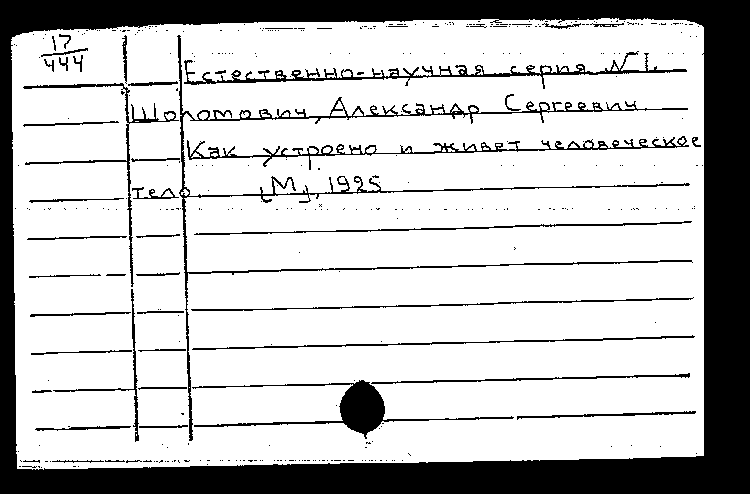 17
444
Естественно-научная серия №1.
Шоломович, Александр Сергеевич.
Как устроено и живет человеческое
тело. [М], 1925